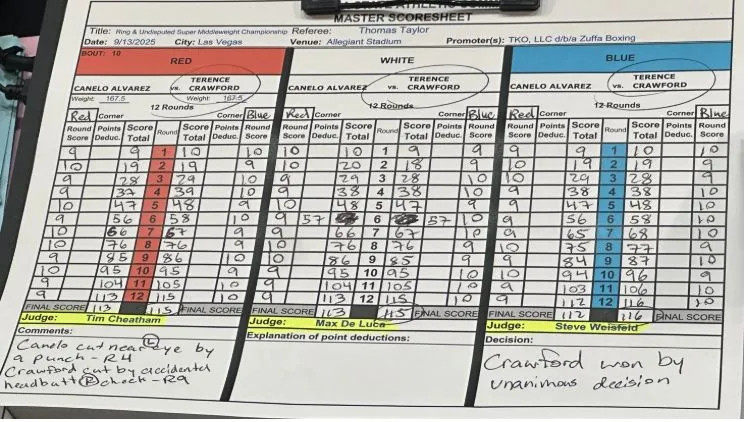 MASTER SCORESHEET
Title: Ring & Undisputed Super Middleweight Championship Referee: Thomas Taylor
Date: 9/13/2025 City: Las Vegas Venue: Allegiant Stadium Promoter(s): TKO, LLC d/b/a Zuffa Boxing
BOUT: 10
RED WHITE BLUE
CANELO ALVAREZ vs. TERENCE CRAWFORD CANELO ALVAREZ vs. TERENCE CRAWFORD CANELO ALVAREZ vs. TERENCE CRAWFORD
Weight: 167.5 Weight: 167.5
12 Rounds 12 Rounds 12 Rounds
Red Corner Corner Blue Red Corner Corner Blue Red Corner Corner Blue
Round Score Points Deduc. Score Total Round Score Total Points Deduc. Round Score Round Score Points Deduc. Score Total Round Score Total Points Deduc. Round Score Round Score Points Deduc. Score Total Round Score Total Points Deduc. Round Score
9 9 1 10 10 10 10 1 9 9 9 9 1 10 10
10 19 2 19 9 10 20 2 18 9 10 19 2 19 9
9 28 3 29 10 9 29 3 28 10 10 29 3 28 9
9 37 4 39 10 9 38 4 38 10 9 38 4 38 10
10 47 5 48 9 10 48 5 47 9 9 47 5 48 10
9 56 6 58 10 9 57 6 57 10 9 56 6 58 10
10 66 7 67 9 9 66 7 67 10 9 65 7 68 10
10 76 8 76 9 10 76 8 76 9 10 75 8 77 9
9 85 9 86 10 10 86 9 85 9 9 84 9 87 10
10 95 10 95 9 9 95 10 95 10 10 94 10 96 9
9 104 11 105 10 9 104 11 105 10 9 103 11 106 10
9 113 12 115 10 9 113 12 115 10 9 112 12 116 10
FINAL SCORE 113 115 FINAL SCORE FINAL SCORE 113 115 FINAL SCORE FINAL SCORE 112 116 FINAL SCORE
Judge: Tim Cheatham Judge: Max De Luca Judge: Steve Weisfeld
Comments:
Canelo cut near (L) eye by
a punch - R4
Crawford cut by accidental
headbutt (R) cheek - R9
Explanation of point deductions:
Decision:
Crawford won by
unanimous decision